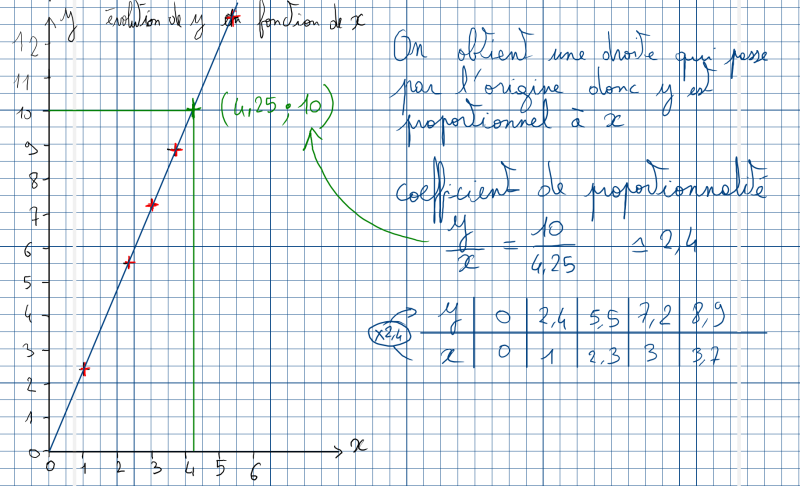 y évolution de y en fonction de x
12
11
10
9
8
7
6
5
4
3
2
1
0
0 1 2 3 4 5 6
x
(4,25 ; 10)
On obtient une droite qui passe
par l'origine donc y est
proportionnel à x
coefficient de proportionnalité
y/x = 10/4,25 ≙ 2,4
×2,4
y 0 2,4 5,5 7,2 8,9
x 0 1 2,3 3 3,7